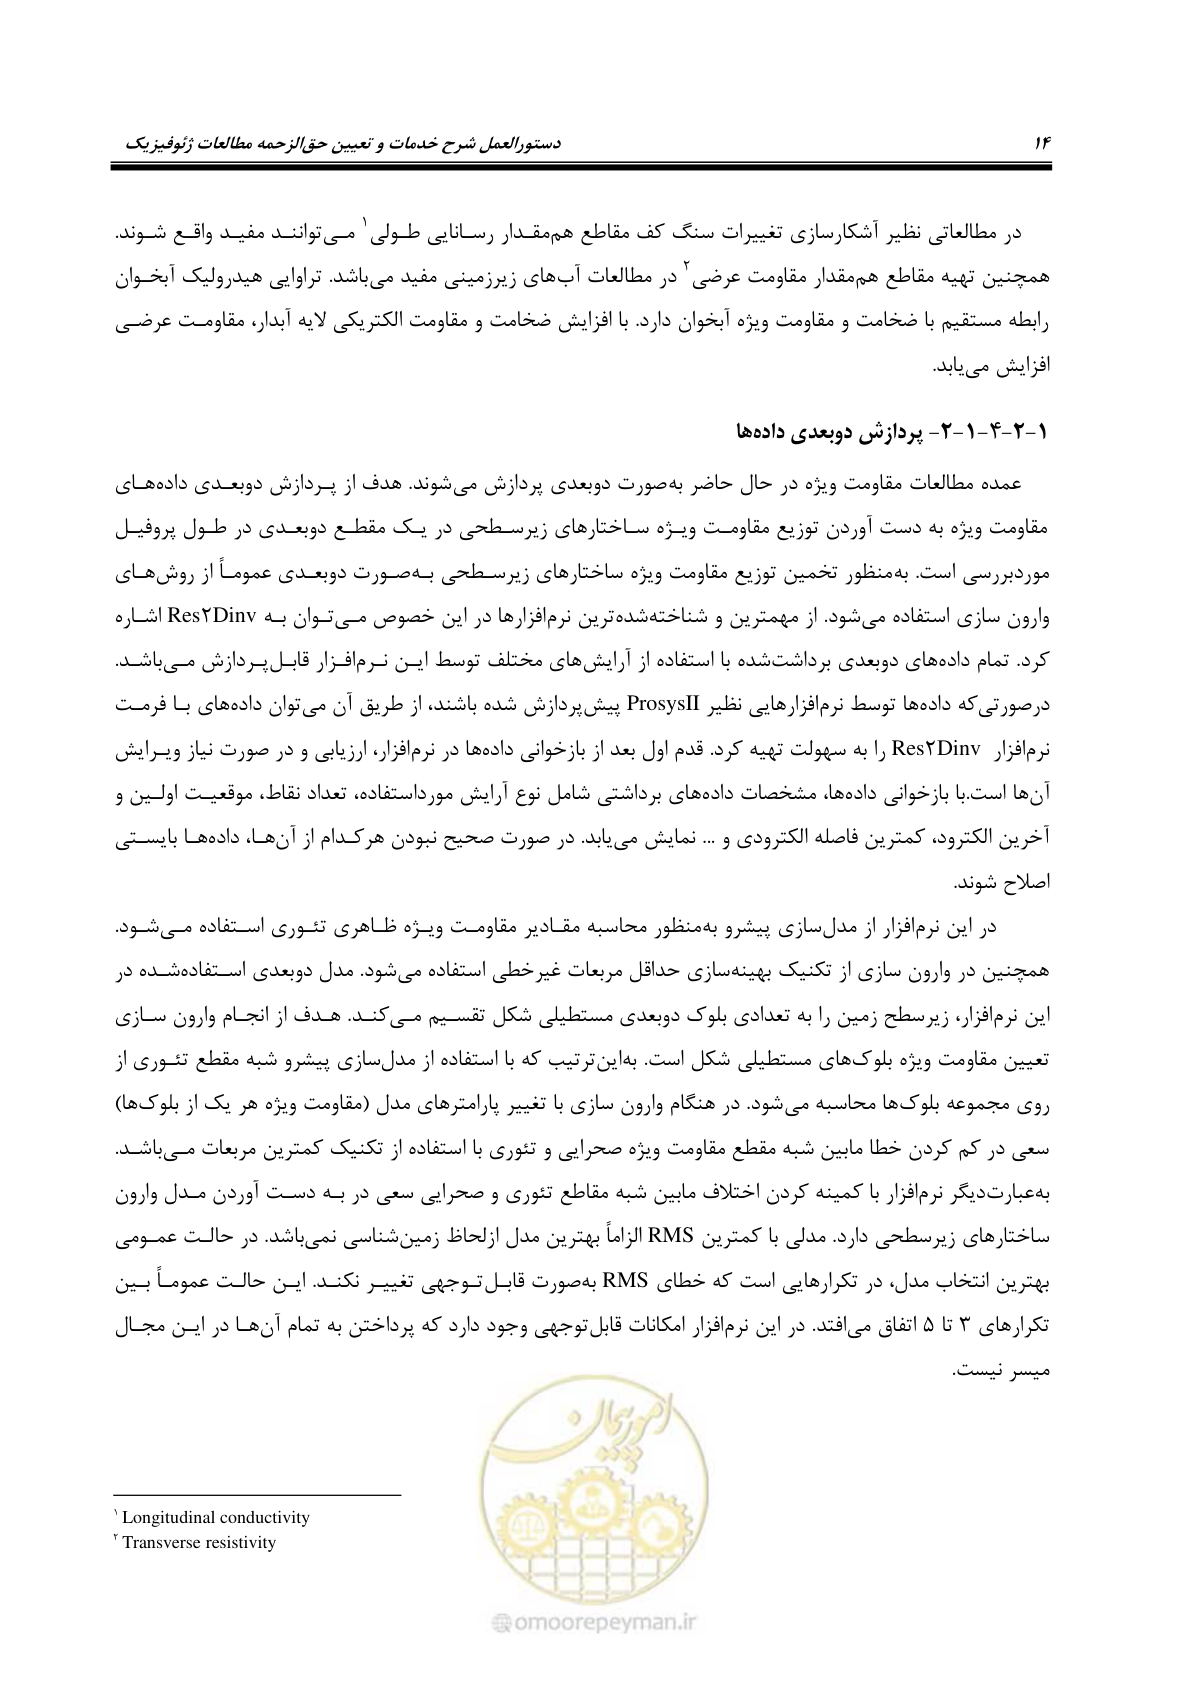 ۱۴
دستورالعمل شرح خدمات و تعیین حق‌الزحمه مطالعات ژئوفیزیک
در مطالعاتی نظیر آشکارسازی تغییرات سنگ کف مقاطع هم‌مقدار رسانایی طولی۱ می‌توانند مفید واقع شوند.
همچنین تهیه مقاطع هم‌مقدار مقاومت عرضی۲ در مطالعات آب‌های زیرزمینی مفید می‌باشد. تراوایی هیدرولیک آبخوان
رابطه مستقیم با ضخامت و مقاومت ویژه آبخوان دارد. با افزایش ضخامت و مقاومت الکتریکی لایه آبدار، مقاومت عرضی
افزایش می‌یابد.
۱-۲-۴-۱-۲- پردازش دوبعدی داده‌ها
عمده مطالعات مقاومت ویژه در حال حاضر به‌صورت دوبعدی پردازش می‌شوند. هدف از پردازش دوبعدی داده‌های
مقاومت ویژه به دست آوردن توزیع مقاومت ویژه ساختارهای زیرسطحی در یک مقطع دوبعدی در طول پروفیل
موردبررسی است. به‌منظور تخمین توزیع مقاومت ویژه ساختارهای زیرسطحی به‌صورت دوبعدی عموماً از روش‌های
وارون سازی استفاده می‌شود. از مهمترین و شناخته‌شده‌ترین نرم‌افزارها در این خصوص می‌توان به Res۲Dinv اشاره
کرد. تمام داده‌های دوبعدی برداشت‌شده با استفاده از آرایش‌های مختلف توسط این نرم‌افزار قابل‌پردازش می‌باشد.
درصورتی‌که داده‌ها توسط نرم‌افزارهایی نظیر ProsysII پیش‌پردازش شده باشند، از طریق آن می‌توان داده‌های با فرمت
نرم‌افزار Res۲Dinv را به سهولت تهیه کرد. قدم اول بعد از بازخوانی داده‌ها در نرم‌افزار، ارزیابی و در صورت نیاز ویرایش
آن‌ها است.با بازخوانی داده‌ها، مشخصات داده‌های برداشتی شامل نوع آرایش مورداستفاده، تعداد نقاط، موقعیت اولین و
آخرین الکترود، کمترین فاصله الکترودی و ... نمایش می‌یابد. در صورت صحیح نبودن هرکدام از آن‌ها، داده‌ها بایستی
اصلاح شوند.
در این نرم‌افزار از مدل‌سازی پیشرو به‌منظور محاسبه مقادیر مقاومت ویژه ظاهری تئوری استفاده می‌شود.
همچنین در وارون سازی از تکنیک بهینه‌سازی حداقل مربعات غیرخطی استفاده می‌شود. مدل دوبعدی استفاده‌شده در
این نرم‌افزار، زیرسطح زمین را به تعدادی بلوک دوبعدی مستطیلی شکل تقسیم می‌کند. هدف از انجام وارون سازی
تعیین مقاومت ویژه بلوک‌های مستطیلی شکل است. به‌این‌ترتیب که با استفاده از مدل‌سازی پیشرو شبه مقطع تئوری از
روی مجموعه بلوک‌ها محاسبه می‌شود. در هنگام وارون سازی با تغییر پارامترهای مدل (مقاومت ویژه هر یک از بلوک‌ها)
سعی در کم کردن خطا مابین شبه مقطع مقاومت ویژه صحرایی و تئوری با استفاده از تکنیک کمترین مربعات می‌باشد.
به‌عبارت‌دیگر نرم‌افزار با کمینه کردن اختلاف مابین شبه مقاطع تئوری و صحرایی سعی در به دست آوردن مدل وارون
ساختارهای زیرسطحی دارد. مدلی با کمترین RMS الزاماً بهترین مدل ازلحاظ زمین‌شناسی نمی‌باشد. در حالت عمومی
بهترین انتخاب مدل، در تکرارهایی است که خطای RMS به‌صورت قابل‌توجهی تغییر نکند. این حالت عموماً بین
تکرارهای ۳ تا ۵ اتفاق می‌افتد. در این نرم‌افزار امکانات قابل‌توجهی وجود دارد که پرداختن به تمام آن‌ها در این مجال
میسر نیست.
۱ Longitudinal conductivity
۲ Transverse resistivity
امور پیمان
@omoorepeyman.ir